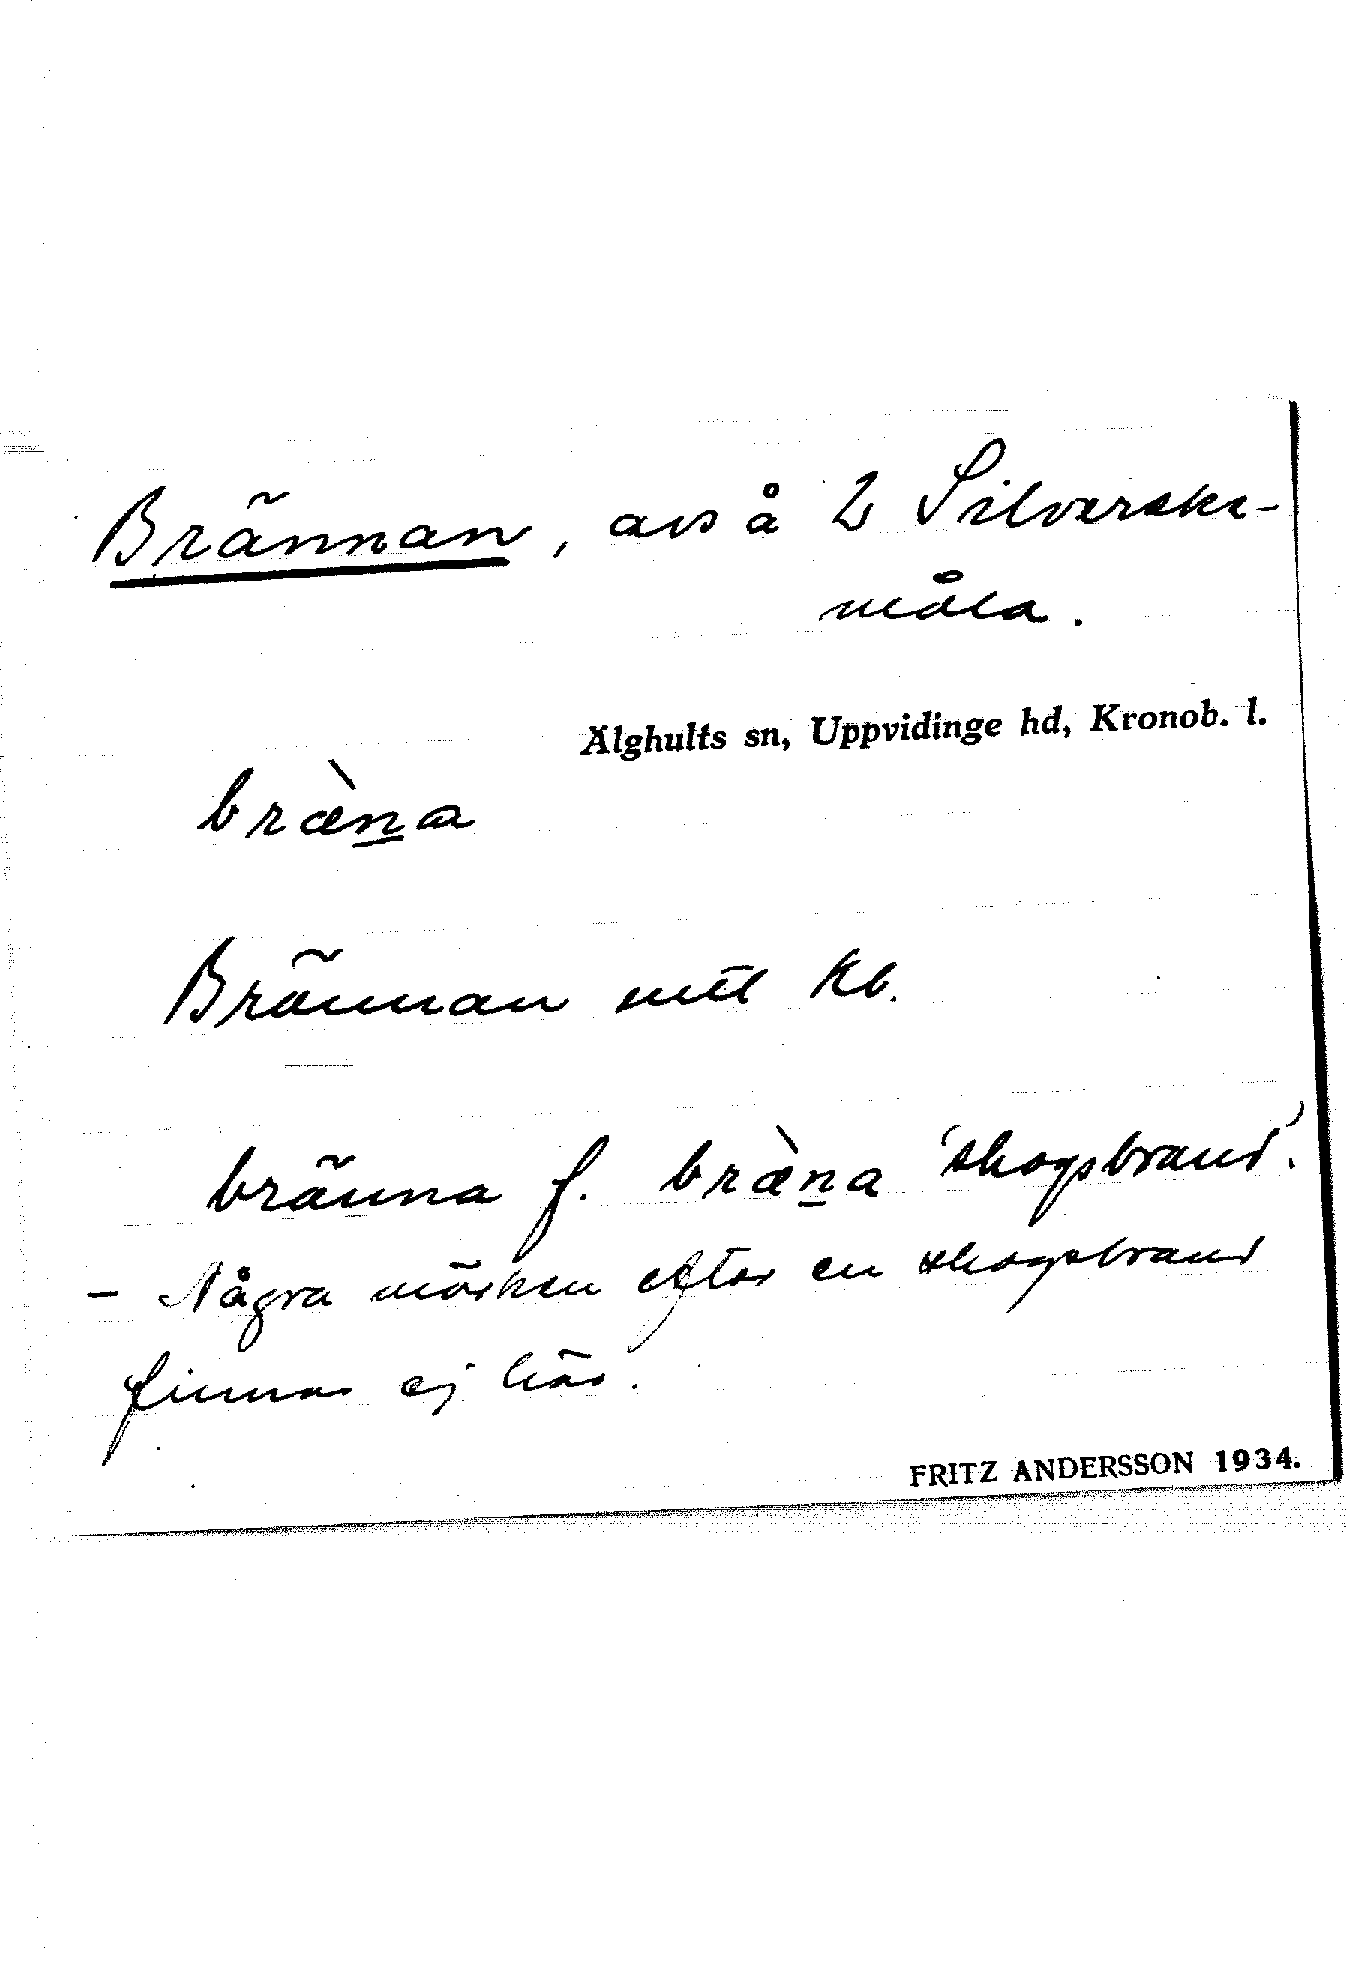 Brännan, avs å 2 Silverske-
måla.
Älghults sn, Uppvidinge hd, Kronob. l.
bræ̀n̲a
Brännan mtl kb.
bränna f. bræ̀n̲a 'skogsbrand'.
- Några märken efter en skogsbrand
finnas ej här.
FRITZ ANDERSSON 1934.